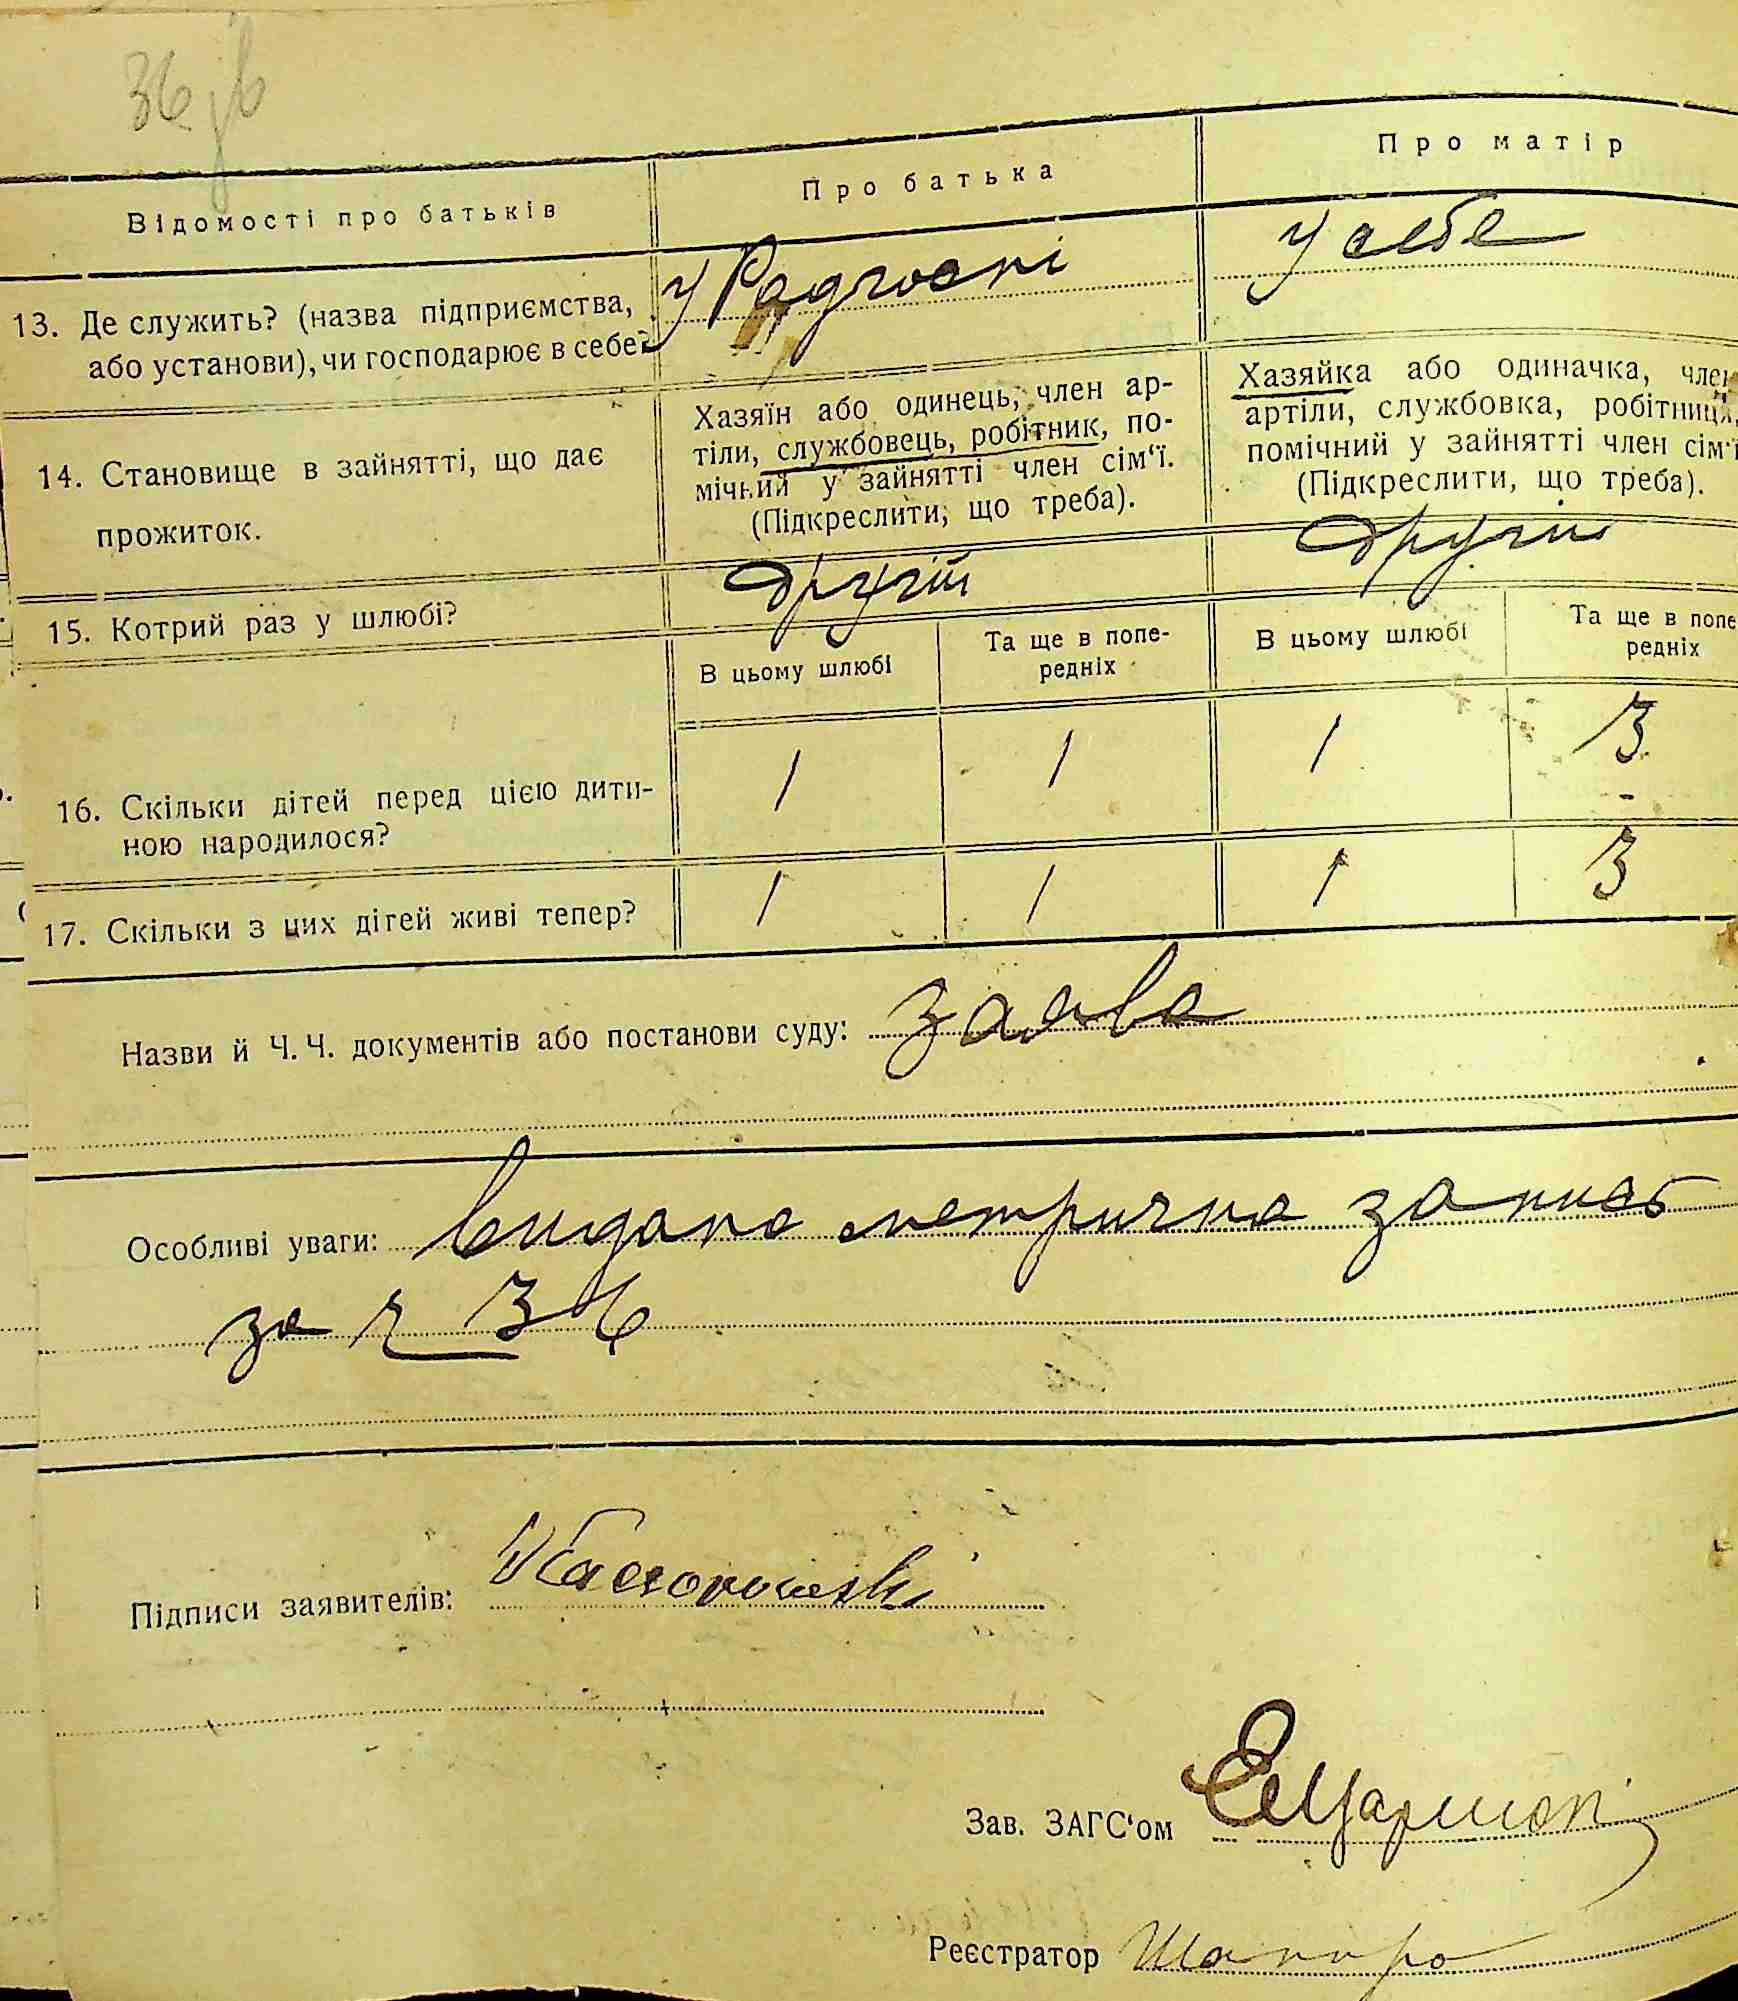 36
Відомості про батьків
Про батька
Про матір
13. Де служить? (назва підприємства,
або установи), чи господарює в себе?
У Радгоспі
У себе
14. Становище в зайнятті, що дає
прожиток.
Хазяїн або одинець, член ар-
тіли, службовець, робітник, по-
мічний у зайнятті член сім'ї.
(Підкреслити, що треба).
Хазяйка або одиначка, член
артіли, службовка, робітниця,
помічний у зайнятті член сім'ї
(Підкреслити, що треба).
15. Котрий раз у шлюбі?
другий
другий
В цьому шлюбі
Та ще в попе-
редніх
В цьому шлюбі
Та ще в попе
редніх
16. Скільки дітей перед цією дити-
ною народилося?
1
1
1
3
17. Скільки з цих дітей живі тепер?
1
1
1
3
Назви й Ч. Ч. документів або постанови суду: заява
Особливі уваги: Видано метрична запись
за ч 36
Підписи заявителів:
Зав. ЗАГС'ом
Реєстратор Шапиро